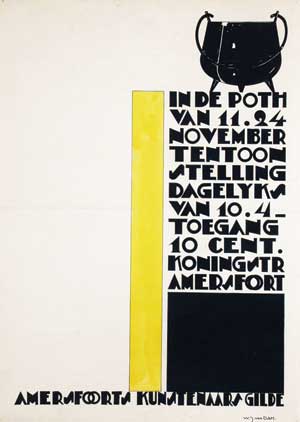 IN DE POTH
VAN 11.24
NOVEMBER
TENTOON
STELLING
DAGELYKS
VAN 10.4_
TOEGANG
10 CENT.
KONINGSTR
AMERSFORT
AMERSFOORTS KUNSTENAARS GILDE